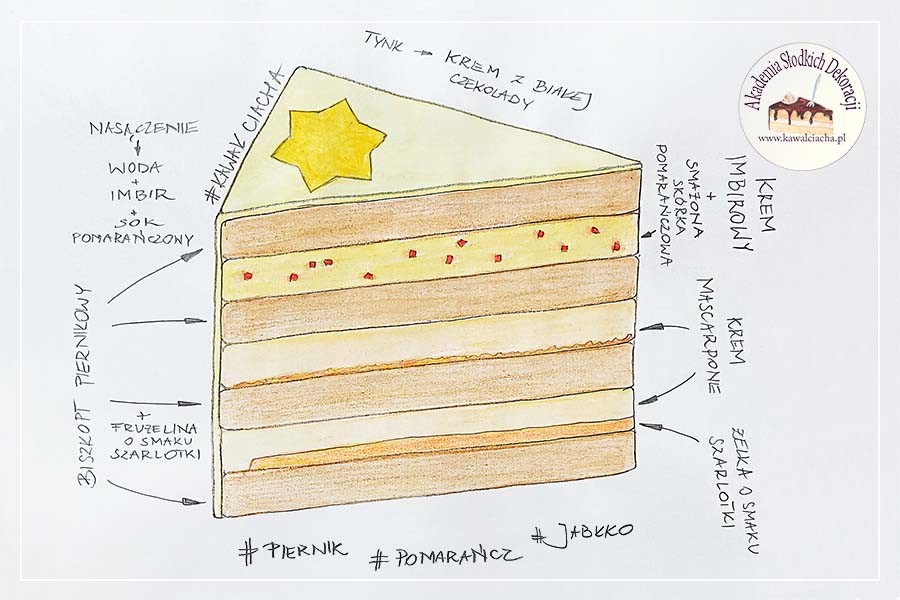 TYNK → KREM Z BIAŁEJ
CZEKOLADY
Akademia Słodkich Dekoracji
www.kawalciacha.pl
#KAWAŁ CIACHA
NASĄCZENIE
↓
WODA
+
IMBIR
+
SOK
POMARAŃCZOWY
BISZKOPT PIERNIKOWY
+
FRUŻELINA
O SMAKU
SZARLOTKI
KREM
IMBIROWY
+
SMAŻONA
SKÓRKA
POMARAŃCZOWA
KREM
MASCARPONE
ŻELKA O SMAKU
SZARLOTKI
#PIERNIK
#POMARAŃCZ
#JABŁKO